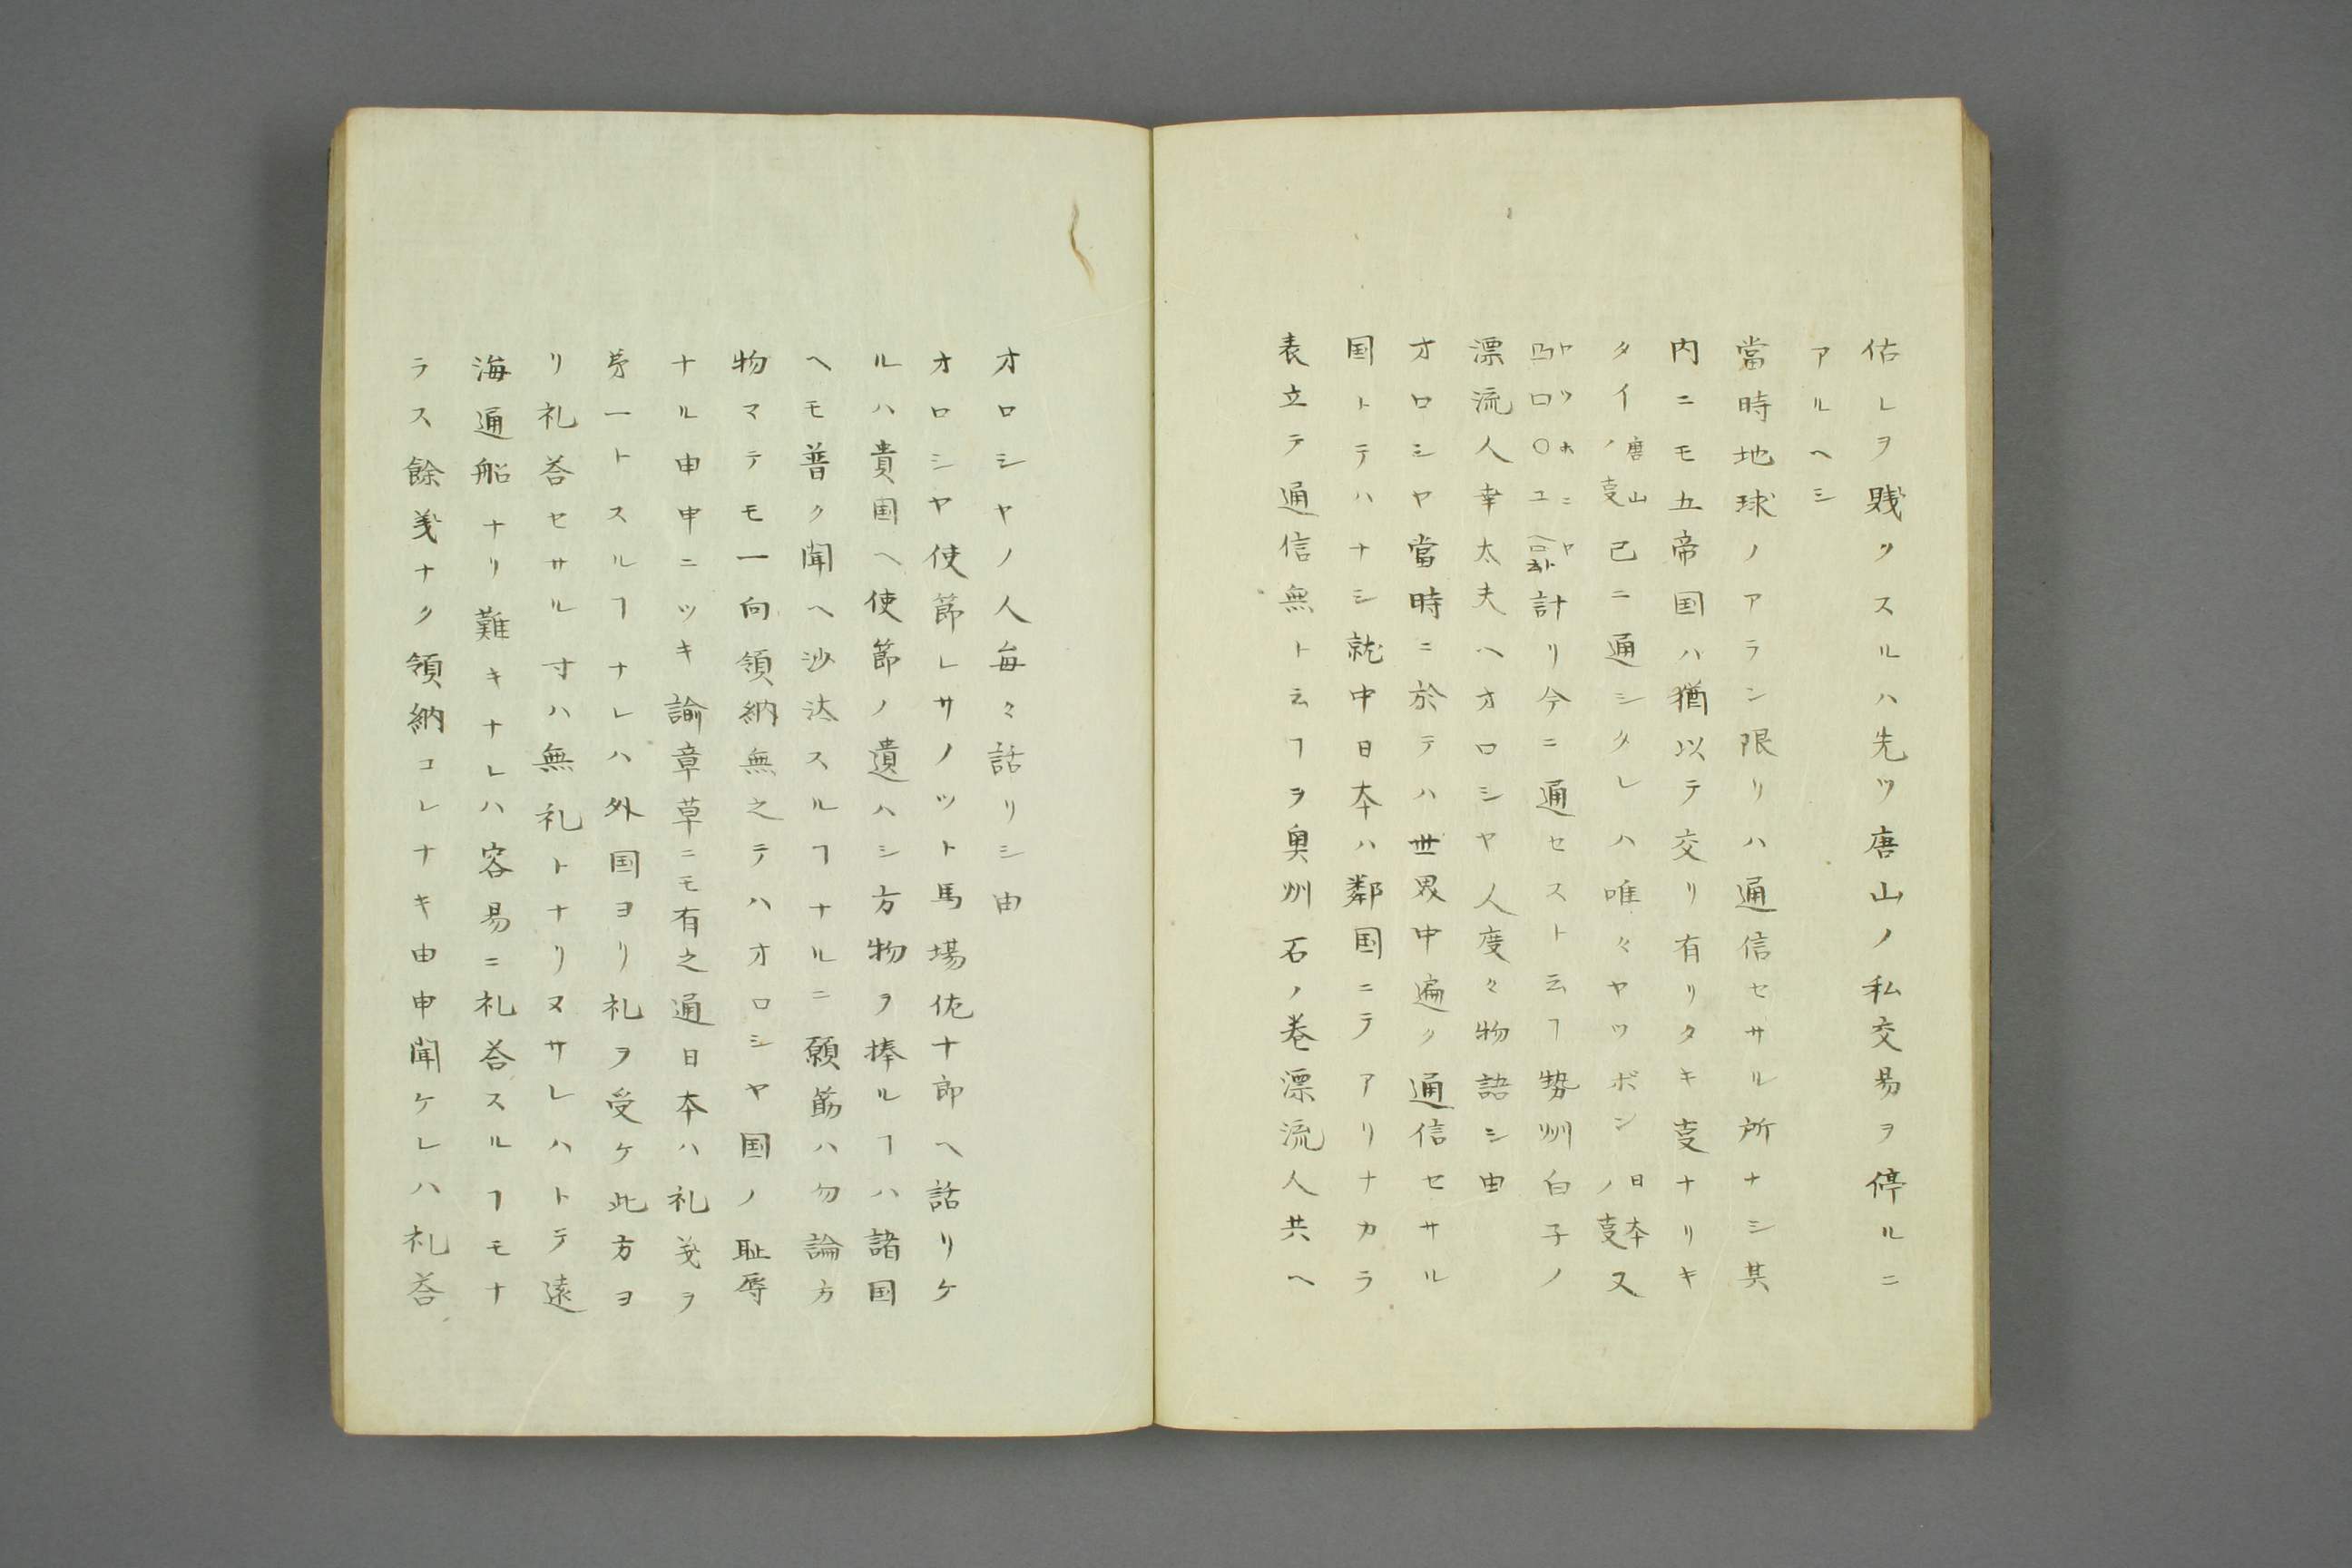 估レヲ賤クスルハ先ツ唐山ノ私交易ヲ停ルニ
アルヘシ
當時地球ノアラン限リハ通信セサル所ナシ其
内ニモ五帝国ハ猶以テ交リ有リタキ叓ナリキ
タイノ叓唐山已ニ通シクレハ唯々ヤツボンノ叓日本ヌ
計リ今ニ通セスト云ヿ勢州白子ノ
漂流人幸太夫ヘオロシヤ人度々物語シ由
オロシヤ當時ニ於テハ世界中遍ク通信セサル
国トテハナシ就中日本ハ鄰国ニテアリナカラ
表立テ通信無ト云ヿヲ奥州石ノ巻漂流人共ヘ
オロシヤノ人毎々話リシ由
オロシヤ使節レサノツト馬場佐十郎ヘ話リケ
ルハ貴国ヘ使節ノ遺ハシ方物ヲ捧ルヿハ諸国
ヘモ普ク聞ヘ沙汰スルヿナルニ願筋ハ勿論方
物マテモ一向領納無之テハオロシヤ国ノ耻辱
ナル申申ニツキ諭章草ニモ有之通日本ハ礼義ヲ
㐧一トスルヿナレハ外国ヨリ礼ヲ受ケ此方ヨ
リ礼荅セサル寸ハ無礼トナリヌサレハトテ遠
海通船ナリ難キナレハ容易ニ礼荅スルヿモナ
ラス餘義ナク領納コレナキ由申聞ケレハ礼荅